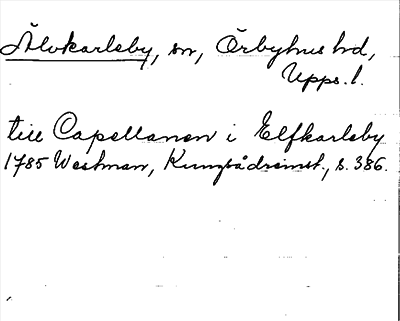 Älvkarleby, sn, Örbyhus hd,
Upps. l.
till Capellanen i Elfkarleby
1785 Westman, Kungsådreinst., s. 386.